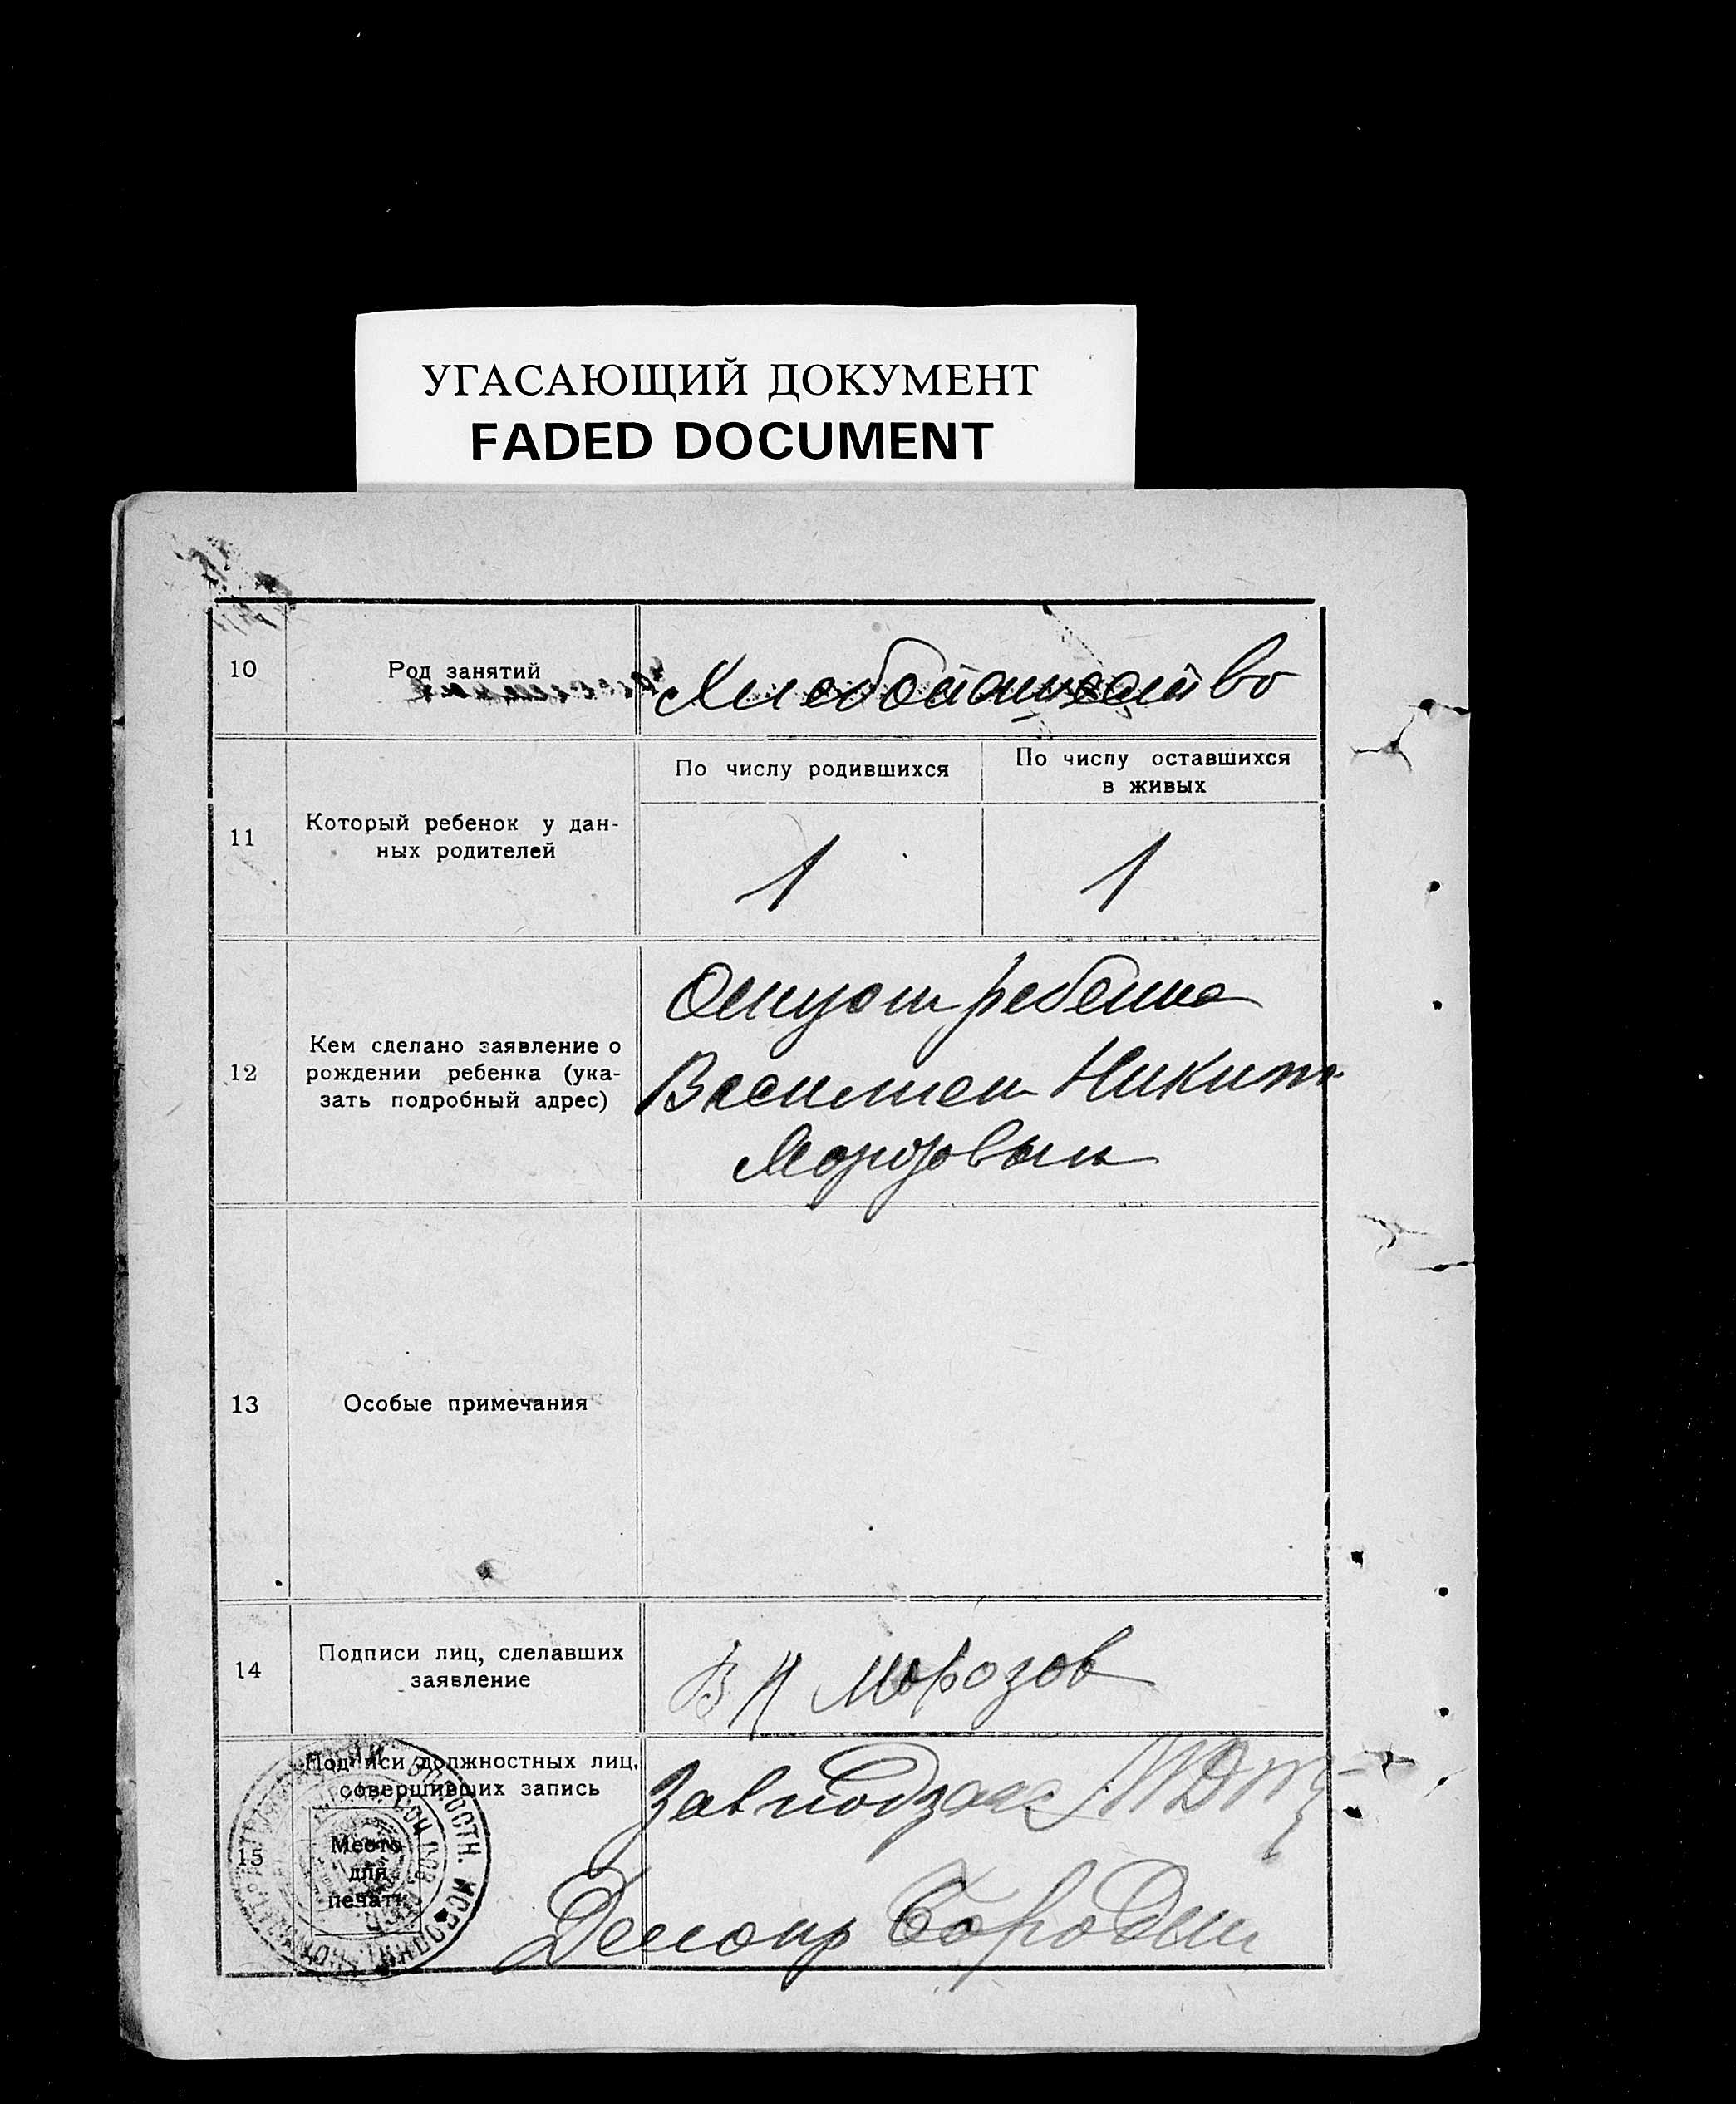 УГАСАЮЩИЙ ДОКУМЕНТ
FADED DOCUMENT
10
Род занятий
Хлебопашество
11
Который ребенок у дан-
ных родителей
По числу родившихся
По числу оставшихся
в живых
1
1
12
Кем сделано заявление о
рождении ребенка (ука-
зать подробный адрес)
Отцом ребенка
Василием Никит
Морозовым
13
Особые примечания
14
Подписи лиц, сделавших
заявление
В Н Морозов
15
Подписи должностных лиц,
совершивших запись
Место
для
печати
Завподзагс
Делопр Бородин